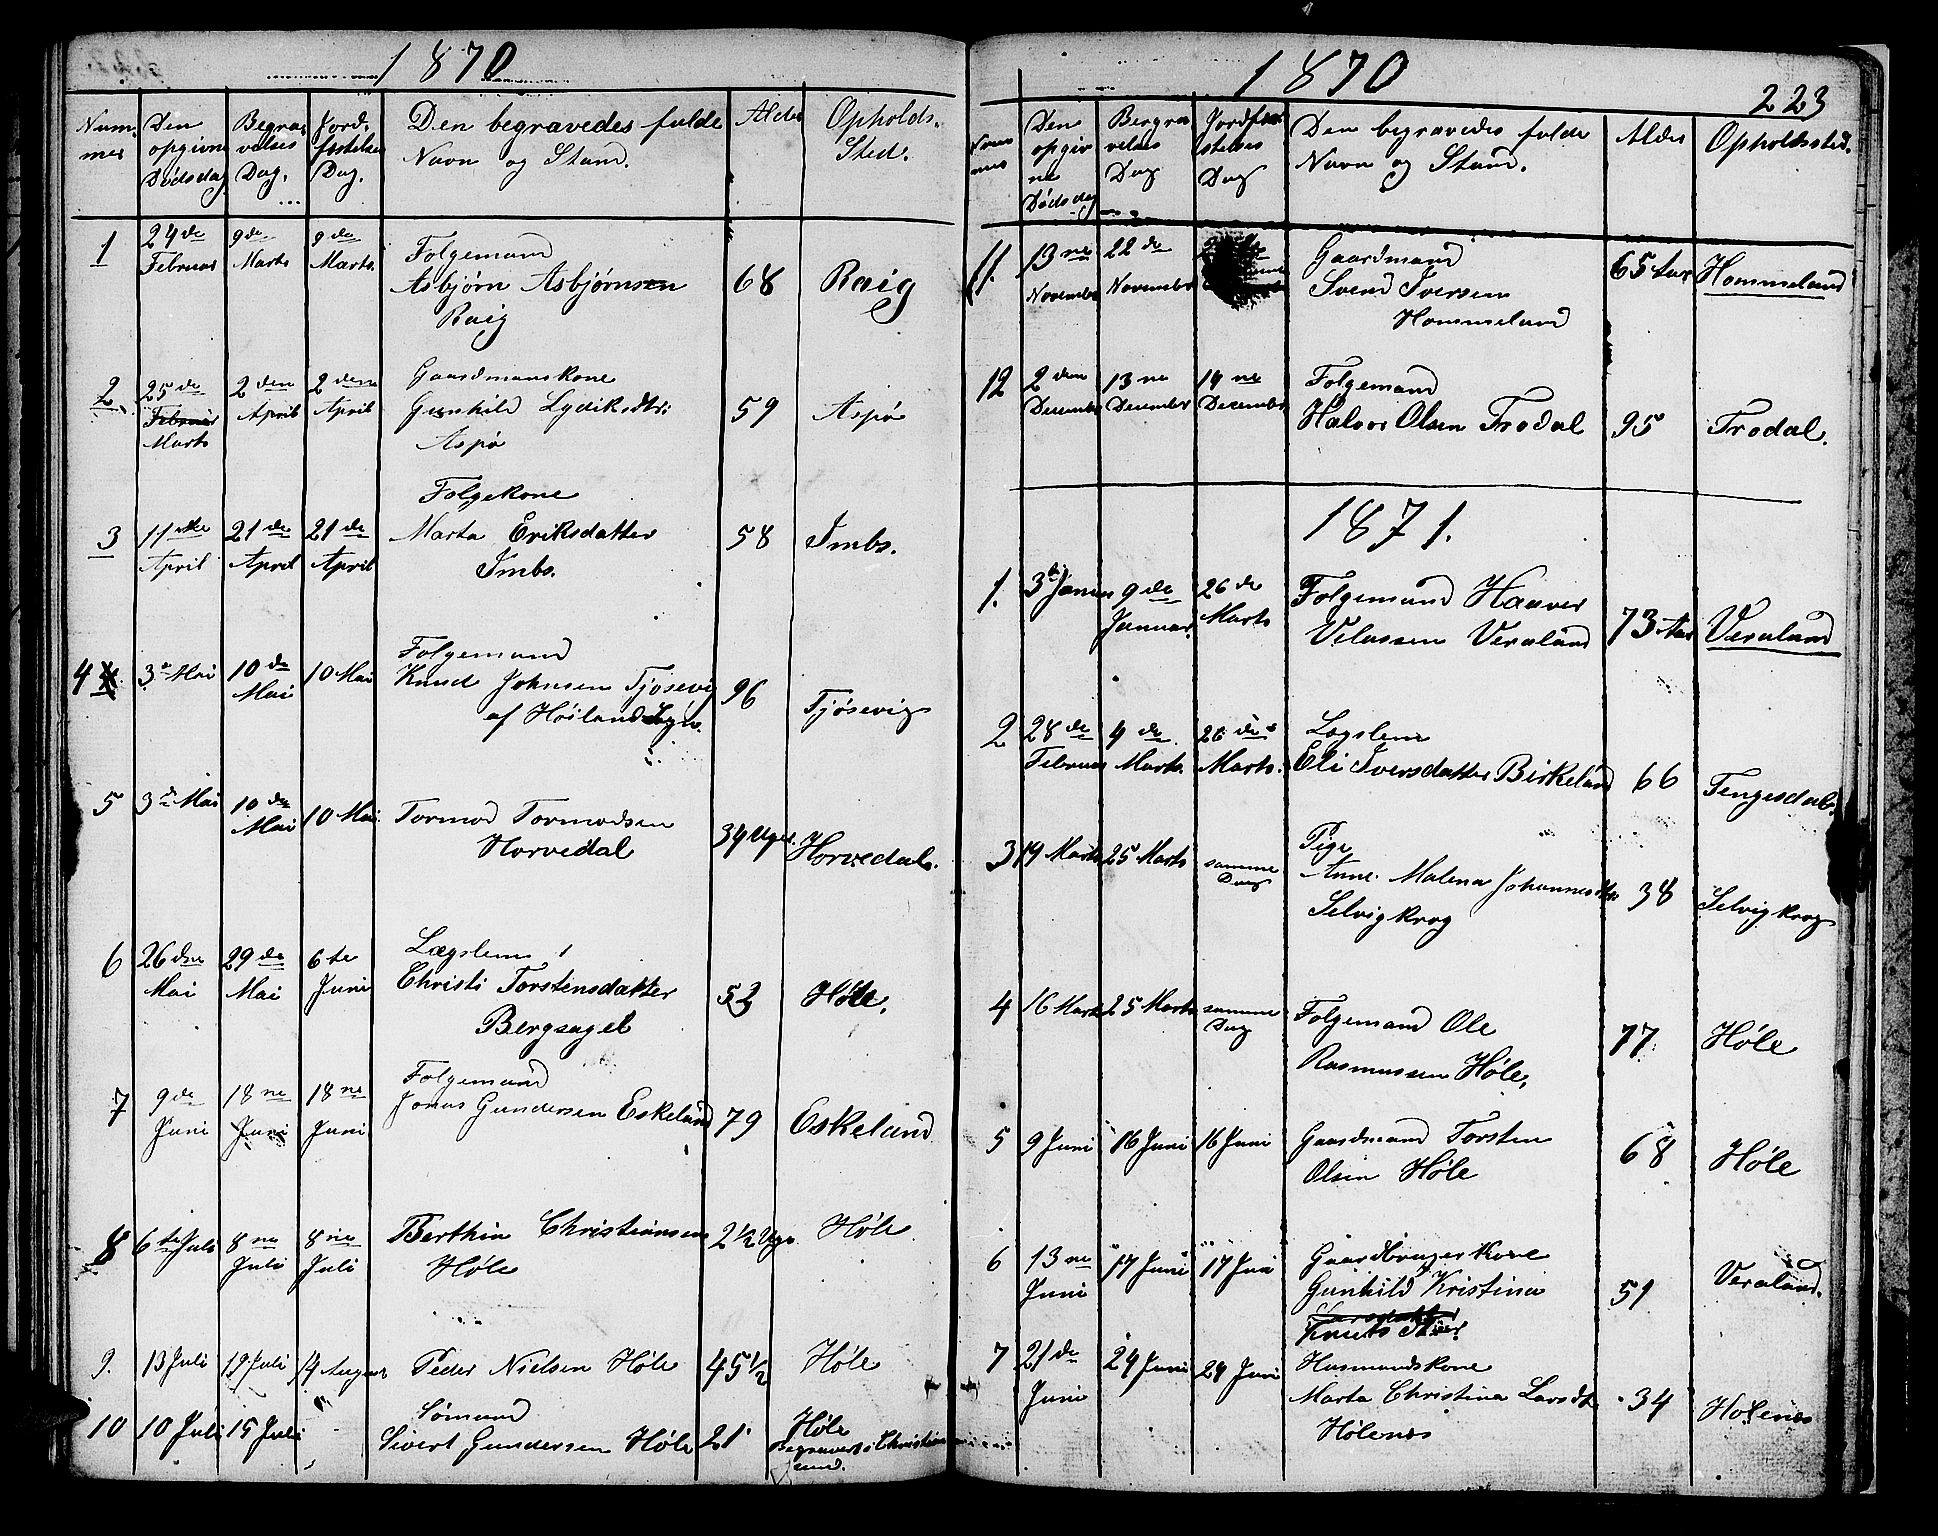 1870
Num-
mer
Den
opgivne
Dødsdag
Begra-
velses
Dag.
Jord-
fæstelses
Dag.
Den begravedes fulde
Navn og Stand.
Alder
Opholds-
Sted.
1
24de
Februar
9de
Marts
9de
Marts.
Folgemand
Asbjørn Asbjørnsen
Raig
68
Raig
2
25de
Februar
Marts
2den
April
2den
April
Gaardmanskone
Gunhild Lydiksdtr:
Aspø
59
Aspø
3
11te
April
21de
April
21de
April
Folgekone
Marta Eriksdatter
Imbs.
58
Imbs.
4
3de Mai
10de
Mai
10 Mai
Folgemand
Knud Johnsen Tjøsevig
af Høilands Sogn.
96
Tjøsevig
5
3de Mai
10de
Mai
10 Mai.
Tormod Tormodsen
Horvedal
34 Uger.
Horvedal.
6
26dne
Mai
29de
Mai
6te
Juni
Lægslem
Christi Torstensdatter
Bergsagel
52
Høle.
7
9de
Juni
18ne
Juni
18ne
Juni
Folgemand
Jonas Gundersen Eskeland
79
Eskeland
8
6te Juli
8ne
Juli
8ne
Juli
Berthin Christiansen
Høle
2½ Uge
Høle
9.
13 Juli
19 Juli
14 August
Peder Nielsen Høle
45½
Høle
10
10 Juli
15 Juli
Sømand
Sivert Gundersen Høle
21
Høle
Begravet i Christian
sund.
1870
223
Num
mer
Den
opgiv
ne
Dødsdag
Bergra
velses
Dag
Jordfæ
stelses
Dag
Den begravedes fulde
Navn og Stand.
Alder
Opholdssted.
11.
13ne
November
22de
November
Gaardmand
Svend Iversen
Hommeland
65 Aar
Hommeland
12
2den
December
13ne
December
19ne
December
Folgemand
Halvor Olsen Trodal
95
Trodal.
1871.
1.
3die Januar
9de
Januar.
26de
Marts
Folgemand Haaver
Velassen Veraland
73 Aar
Veraland
2
28de
Februar
4de
Marts.
26de
Marts.
Lægslem
Eli Iversdatter Birkeland
66
Tengesdal.
3
19 Marts
25 Marts
samme
Dag
Pige
Anne Malena Johannesdtr
Selvigkrog
38
Selvigkrog
4
16 Marts
25 Marts
samme
Dag
Folgemand Ole
Rasmussen Høle,
77
Høle
5
9 Juni
16 Juni
16 Juni
Gaardmand Torsten
Olsen Høle
68
Høle
6
13ne
Juni
17 Juni
17 Juni
Gaardbruger kone
Gunhild Kristina
Larsdatter
Knuts dtter
51
Veraland.
7
21de
Juni
24 Juni
24 Juni
Husmandskone
Marta Christina Larsdt
Hølenes
34
Holenes